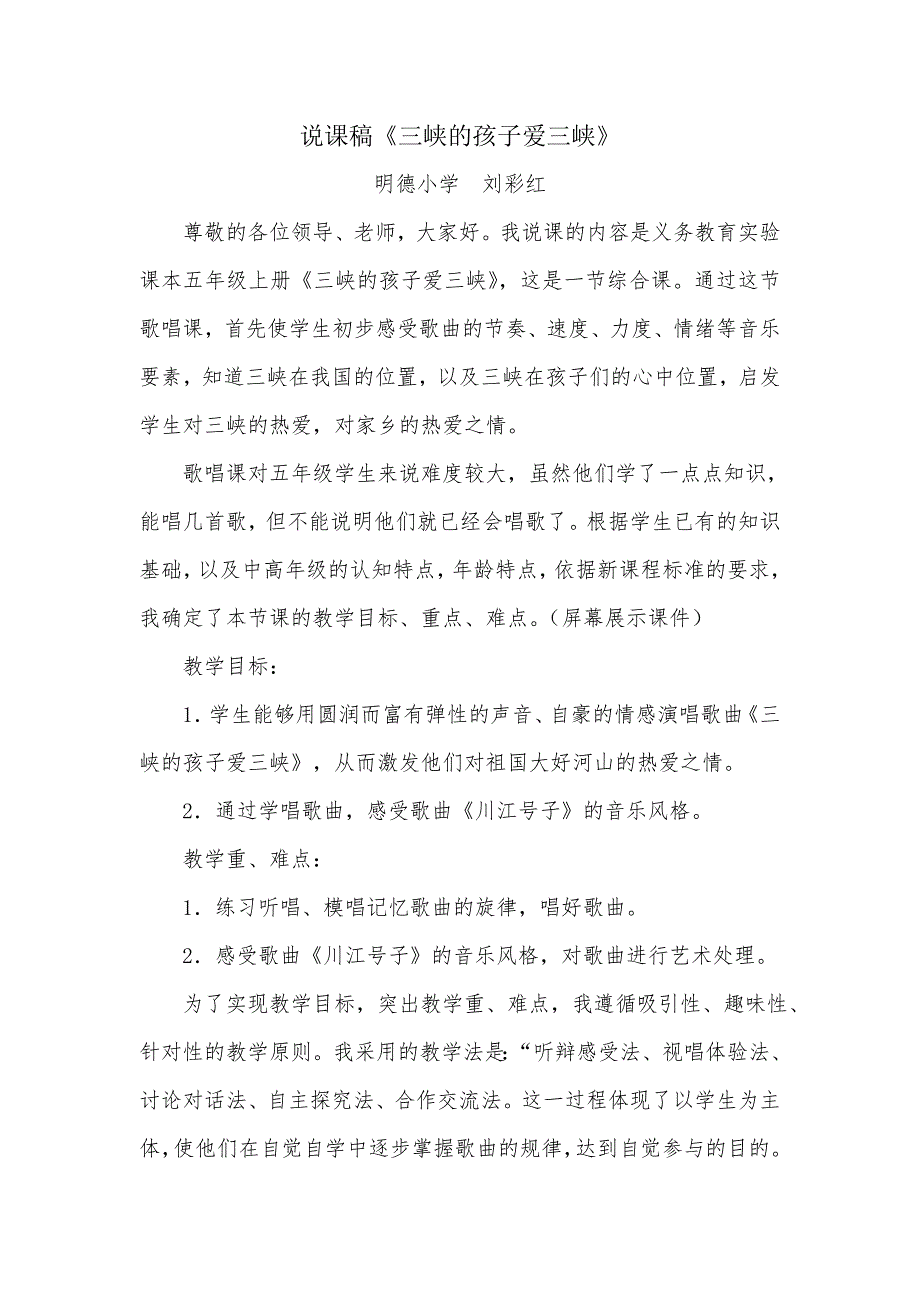 说课稿《三峡的孩子爱三峡》
明德小学　刘彩红
尊敬的各位领导、老师，大家好。我说课的内容是义务教育实验
课本五年级上册《三峡的孩子爱三峡》，这是一节综合课。通过这节
歌唱课，首先使学生初步感受歌曲的节奏、速度、力度、情绪等音乐
要素，知道三峡在我国的位置，以及三峡在孩子们的心中位置，启发
学生对三峡的热爱，对家乡的热爱之情。
歌唱课对五年级学生来说难度较大，虽然他们学了一点点知识，
能唱几首歌，但不能说明他们就已经会唱歌了。根据学生已有的知识
基础，以及中高年级的认知特点，年龄特点，依据新课程标准的要求，
我确定了本节课的教学目标、重点、难点。（屏幕展示课件）
教学目标：
1．学生能够用圆润而富有弹性的声音、自豪的情感演唱歌曲《三
峡的孩子爱三峡》，从而激发他们对祖国大好河山的热爱之情。
2．通过学唱歌曲，感受歌曲《川江号子》的音乐风格。
教学重、难点：
1．练习听唱、模唱记忆歌曲的旋律，唱好歌曲。
2．感受歌曲《川江号子》的音乐风格，对歌曲进行艺术处理。
为了实现教学目标，突出教学重、难点，我遵循吸引性、趣味性、
针对性的教学原则。我采用的教学法是：“听辩感受法、视唱体验法、
讨论对话法、自主探究法、合作交流法。这一过程体现了以学生为主
体，使他们在自觉自学中逐步掌握歌曲的规律，达到自觉参与的目的。